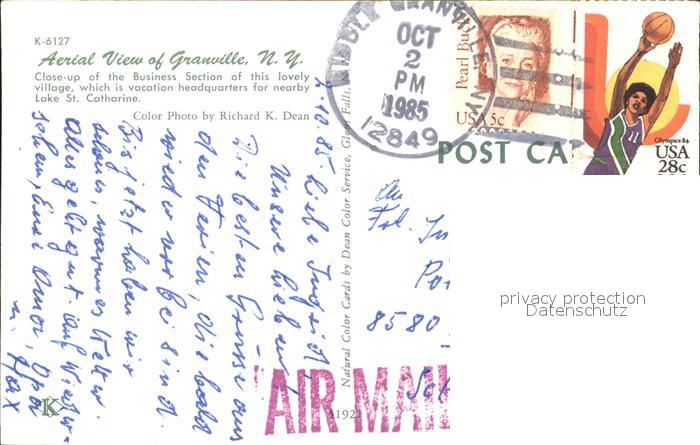 K-6127
Aerial View of Granville, N. Y.
Close-up of the Business Section of this lovely
village, which is vacation headquarters for nearby
Lake St. Catharine.
Color Photo by Richard K. Dean
MIDDLE GRANVILLE NY
OCT
2
PM
1985
12849
Pearl Buck
USA 5c
Olympics 84
USA
28c
11
POST CA
Natural Color Cards by Dean Color Service, Glens Falls,
2.10.85 Liebe
Unsere lieben
Die besten Grüsse aus
den Ferien, die bald
wieder vorbei sind.
Bis jetzt haben wir
schönes, warmes Wetter.
Alles geht gut. Auf Wieder-
sehen, Eure Omor, Opa
u. Max
An
Frl.
8580
AIR MAI
privacy protection
Datenschutz
K